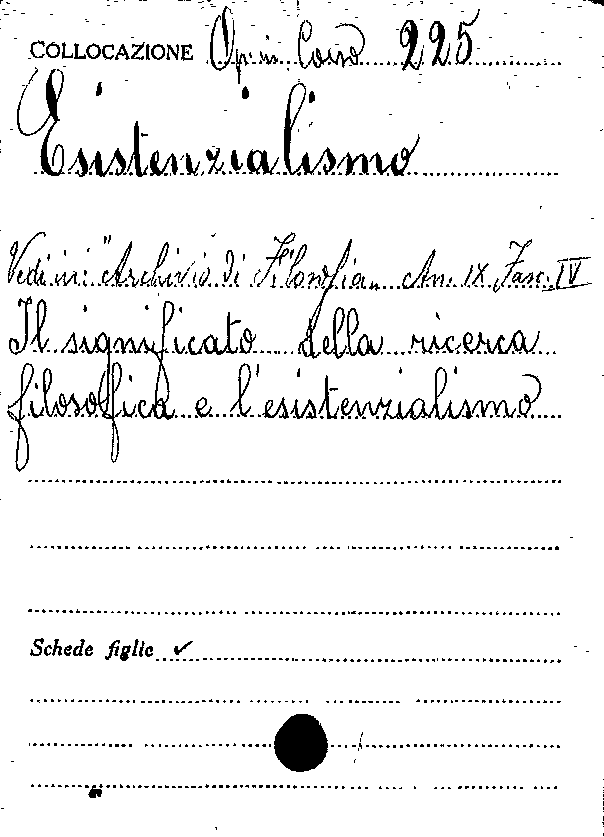 COLLOCAZIONE Op. in Corso 225
Esistenzialismo
Vedi in: "Archivio di Filosofia„ An. IX Fasc. IV
Il significato della ricerca
filosofica e l'esistenzialismo
Schede figlie ✓